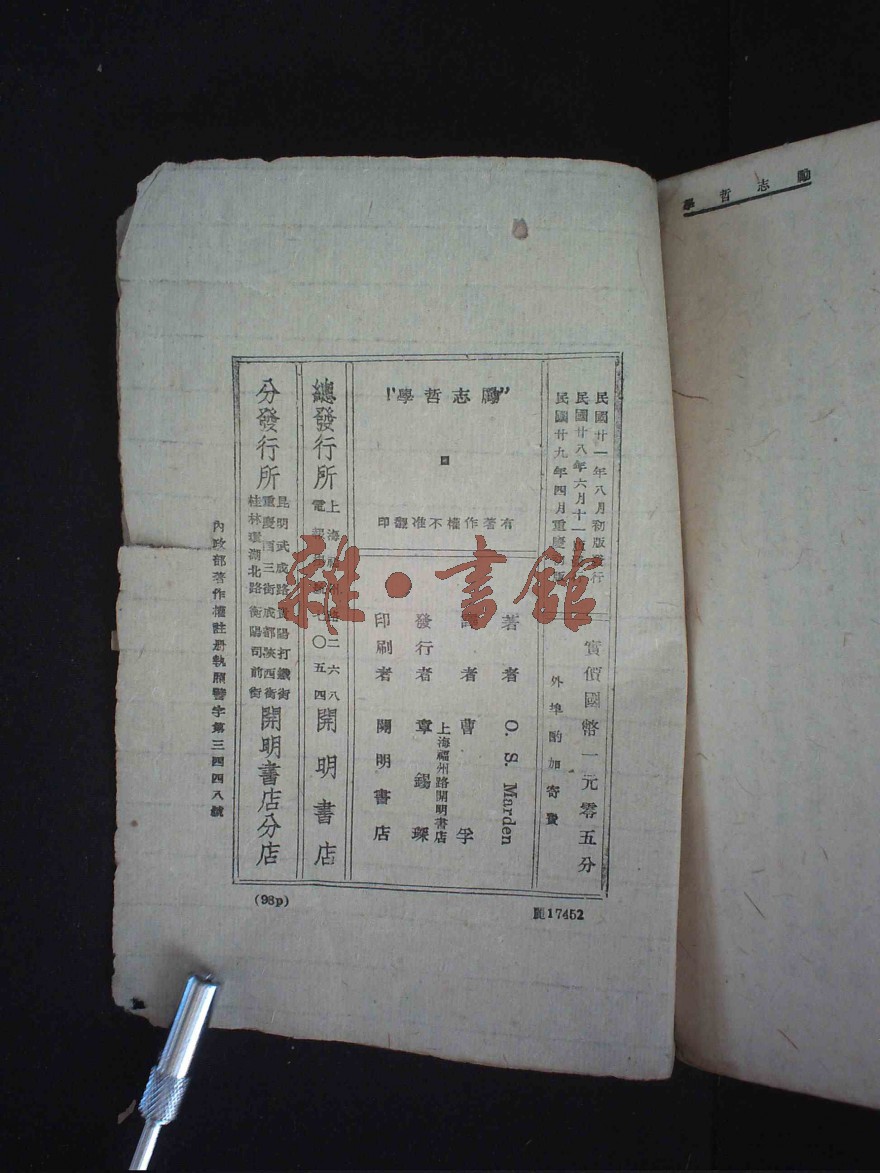 勵志哲學
民國廿一年八月初版發行
民國廿八年六月十一
民國廿九年四月重慶
實價國幣一元零五分
外埠酌加寄費
“勵志哲學”
有著作權不准翻印
著者 O. S. Marden
譯者 曹孚
上海福州路開明書店
發行者 章錫琛
印刷者 開明書店
總發行所
上海福州路二六八
電
〇五四
開明書店
分發行所
昆明武成路 貴陽打鐵街
重慶西三街 成都陝西街
桂林環湖北路 衡陽司前街
開明書店分店
內政部著作權註册執照警字第三四四八號
(98p)
17452
雜·書館